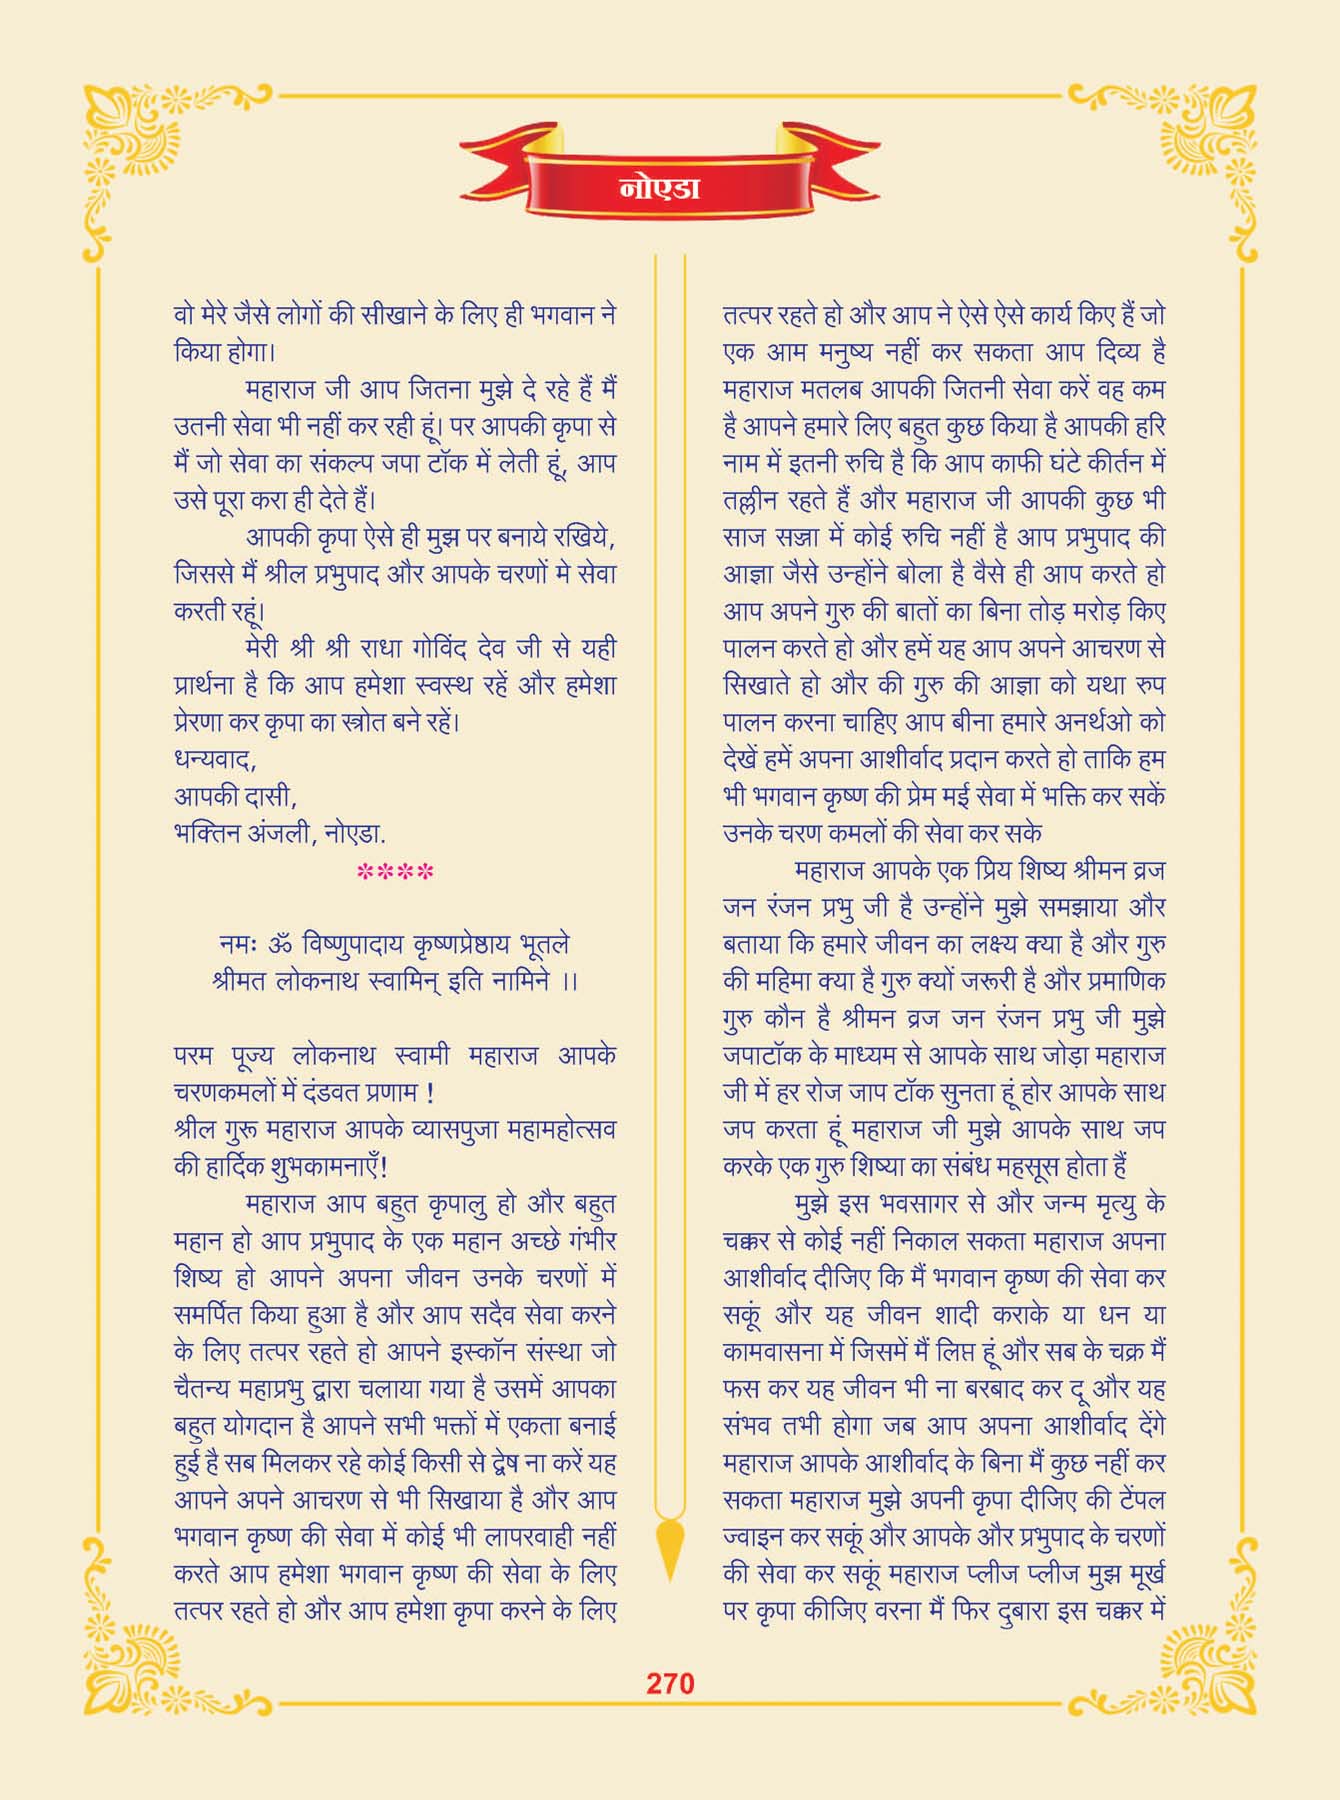 नोएडा
वो मेरे जैसे लोगों की सीखाने के लिए ही भगवान ने
किया होगा।
महाराज जी आप जितना मुझे दे रहे हैं मैं
उतनी सेवा भी नहीं कर रही हूं। पर आपकी कृपा से
मैं जो सेवा का संकल्प जपा टॉक में लेती हूं, आप
उसे पूरा करा ही देते हैं।
आपकी कृपा ऐसे ही मुझ पर बनाये रखिये,
जिससे मैं श्रील प्रभुपाद और आपके चरणों मे सेवा
करती रहूं।
मेरी श्री श्री राधा गोविंद देव जी से यही
प्रार्थना है कि आप हमेशा स्वस्थ रहें और हमेशा
प्रेरणा कर कृपा का स्त्रोत बने रहें।
धन्यवाद,
आपकी दासी,
भक्तिन अंजली, नोएडा.
****
नमः ॐ विष्णुपादाय कृष्णप्रेष्ठाय भूतले
श्रीमत लोकनाथ स्वामिन् इति नामिने ।।
परम पूज्य लोकनाथ स्वामी महाराज आपके
चरणकमलों में दंडवत प्रणाम !
श्रील गुरू महाराज आपके व्यासपुजा महामहोत्सव
की हार्दिक शुभकामनाएँ!
महाराज आप बहुत कृपालु हो और बहुत
महान हो आप प्रभुपाद के एक महान अच्छे गंभीर
शिष्य हो आपने अपना जीवन उनके चरणों में
समर्पित किया हुआ है और आप सदैव सेवा करने
के लिए तत्पर रहते हो आपने इस्कॉन संस्था जो
चैतन्य महाप्रभु द्वारा चलाया गया है उसमें आपका
बहुत योगदान है आपने सभी भक्तों में एकता बनाई
हुई है सब मिलकर रहे कोई किसी से द्वेष ना करें यह
आपने अपने आचरण से भी सिखाया है और आप
भगवान कृष्ण की सेवा में कोई भी लापरवाही नहीं
करते आप हमेशा भगवान कृष्ण की सेवा के लिए
तत्पर रहते हो और आप हमेशा कृपा करने के लिए
तत्पर रहते हो और आप ने ऐसे ऐसे कार्य किए हैं जो
एक आम मनुष्य नहीं कर सकता आप दिव्य है
महाराज मतलब आपकी जितनी सेवा करें वह कम
है आपने हमारे लिए बहुत कुछ किया है आपकी हरि
नाम में इतनी रुचि है कि आप काफी घंटे कीर्तन में
तल्लीन रहते हैं और महाराज जी आपकी कुछ भी
साज सज्जा में कोई रुचि नहीं है आप प्रभुपाद की
आज्ञा जैसे उन्होंने बोला है वैसे ही आप करते हो
आप अपने गुरु की बातों का बिना तोड़ मरोड़ किए
पालन करते हो और हमें यह आप अपने आचरण से
सिखाते हो और की गुरु की आज्ञा को यथा रुप
पालन करना चाहिए आप बीना हमारे अनर्थओ को
देखें हमें अपना आशीर्वाद प्रदान करते हो ताकि हम
भी भगवान कृष्ण की प्रेम मई सेवा में भक्ति कर सकें
उनके चरण कमलों की सेवा कर सके
महाराज आपके एक प्रिय शिष्य श्रीमन व्रज
जन रंजन प्रभु जी है उन्होंने मुझे समझाया और
बताया कि हमारे जीवन का लक्ष्य क्या है और गुरु
की महिमा क्या है गुरु क्यों जरूरी है और प्रमाणिक
गुरु कौन है श्रीमन व्रज जन रंजन प्रभु जी मुझे
जपाटॉक के माध्यम से आपके साथ जोड़ा महाराज
जी में हर रोज जाप टॉक सुनता हूं होर आपके साथ
जप करता हूं महाराज जी मुझे आपके साथ जप
करके एक गुरु शिष्या का संबंध महसूस होता हैं
मुझे इस भवसागर से और जन्म मृत्यु के
चक्कर से कोई नहीं निकाल सकता महाराज अपना
आशीर्वाद दीजिए कि मैं भगवान कृष्ण की सेवा कर
सकूं और यह जीवन शादी कराके या धन या
कामवासना में जिसमें मैं लिप्त हूं और सब के चक्र मैं
फस कर यह जीवन भी ना बरबाद कर दू और यह
संभव तभी होगा जब आप अपना आशीर्वाद देंगे
महाराज आपके आशीर्वाद के बिना मैं कुछ नहीं कर
सकता महाराज मुझे अपनी कृपा दीजिए की टेंपल
ज्वाइन कर सकूं और आपके और प्रभुपाद के चरणों
की सेवा कर सकूं महाराज प्लीज प्लीज मुझ मूर्ख
पर कृपा कीजिए वरना मैं फिर दुबारा इस चक्कर में
270